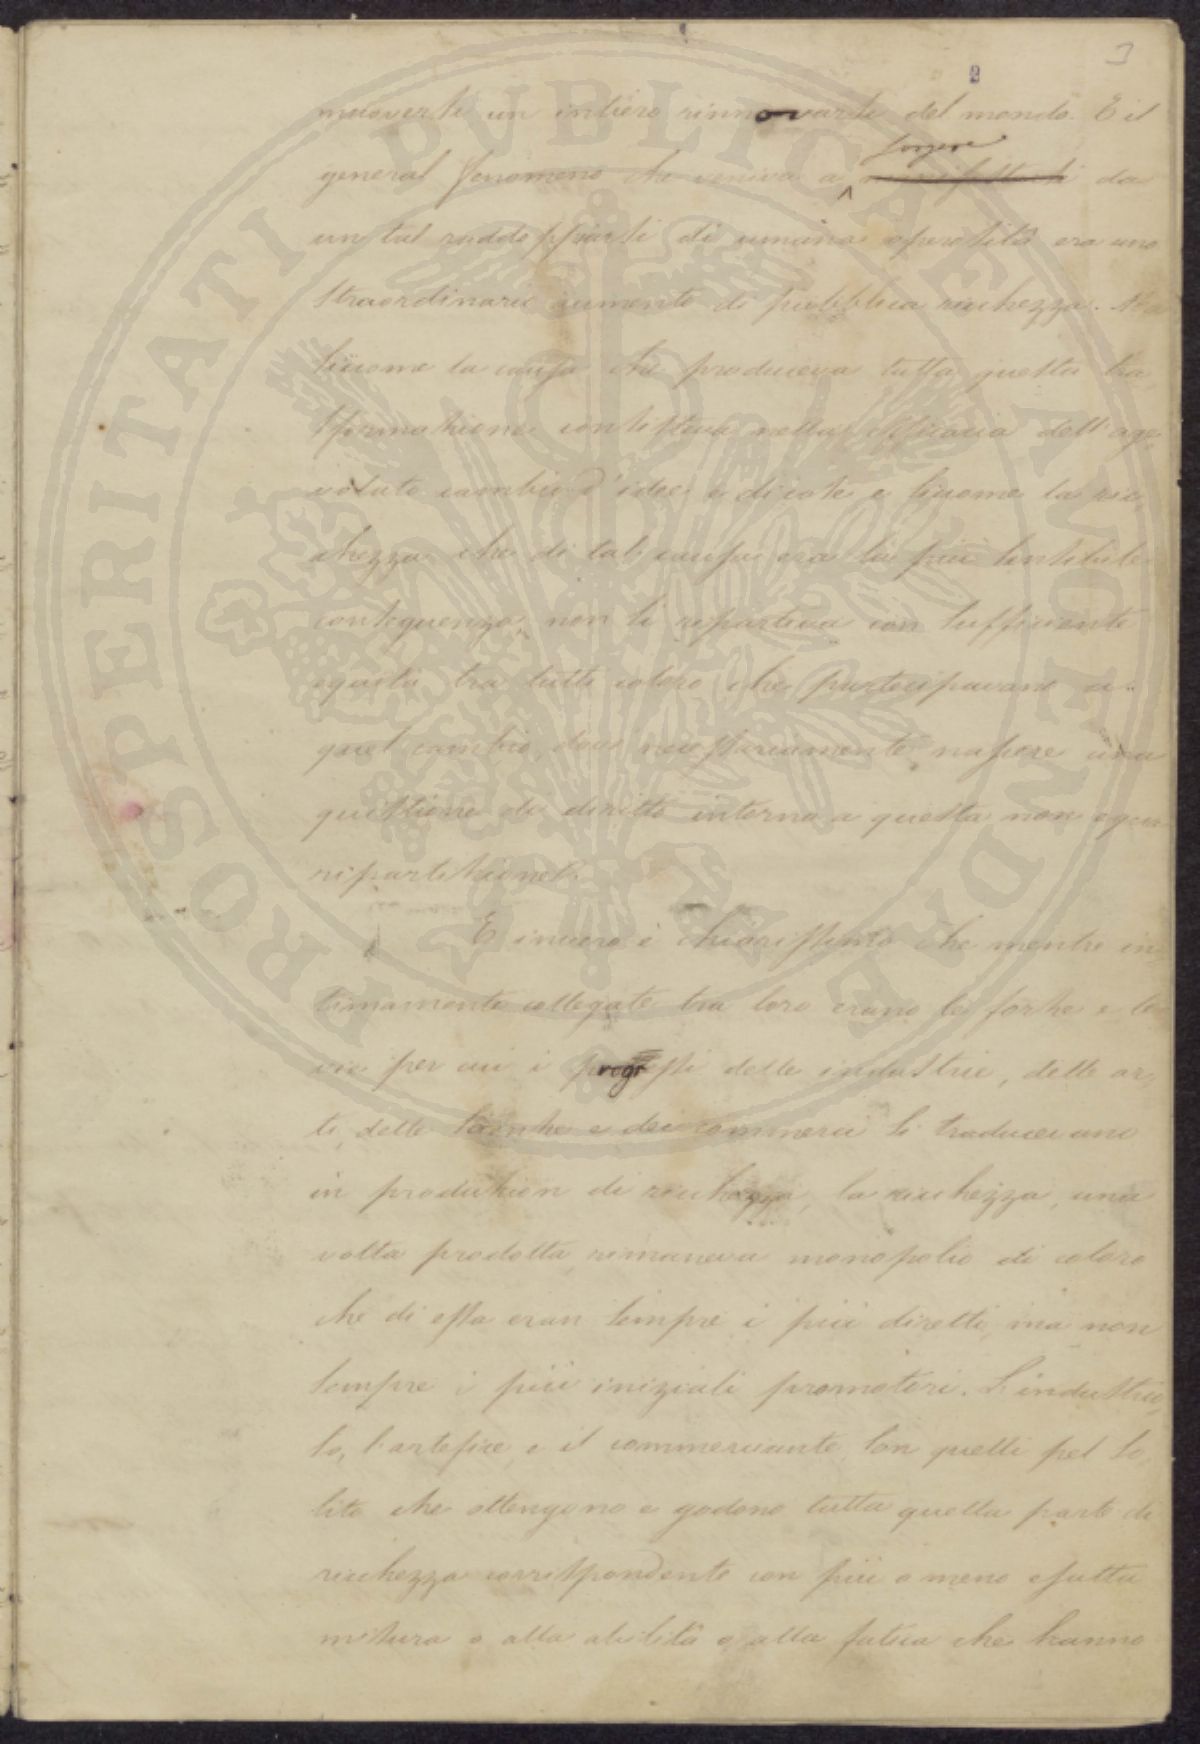 3
2
muoversi un intiero rinnovarsi del mondo. E il
sorgere
general fenomeno che veniva a manifestarsi da
un tal raddoppiarsi di umana operosità era uno
straordinario aumento di pubblica ricchezza. Ma
siccome la causa che produceva tutta questa tra
sformazione consisteva nella efficacia dell'age
volato cambio d'idee e di cose e siccome la ric
chezza che di tal causa era la più sensibile
conseguenza, non si ripartiva con sufficiente
equità tra tutti coloro che partecipavano a
quel cambio, dové necessariamente nascere una
quistione di diritto intorno a questa non equa
ripartizione.
E invero è chiarissimo che mentre in
timamente collegate tra loro erano le forze e le
vie per cui i progressi delle industrie, delle ar
ti, delle scienze e dei commerci si traducevano
in produzion di ricchezza, la ricchezza, una
volta prodotta, rimaneva monopolio di coloro
che di essa eran sempre i più diretti, ma non
sempre i più iniziali promotori. L'industria
le, l'artefice, e il commerciante, son quelli pel so
lito che ottengono e godono tutta quella parte di
ricchezza corrispondente con più o meno esatta
misura o alla abilità o alla fatica che hanno
PROSPERITATI PUBLICAE AUGENDAE